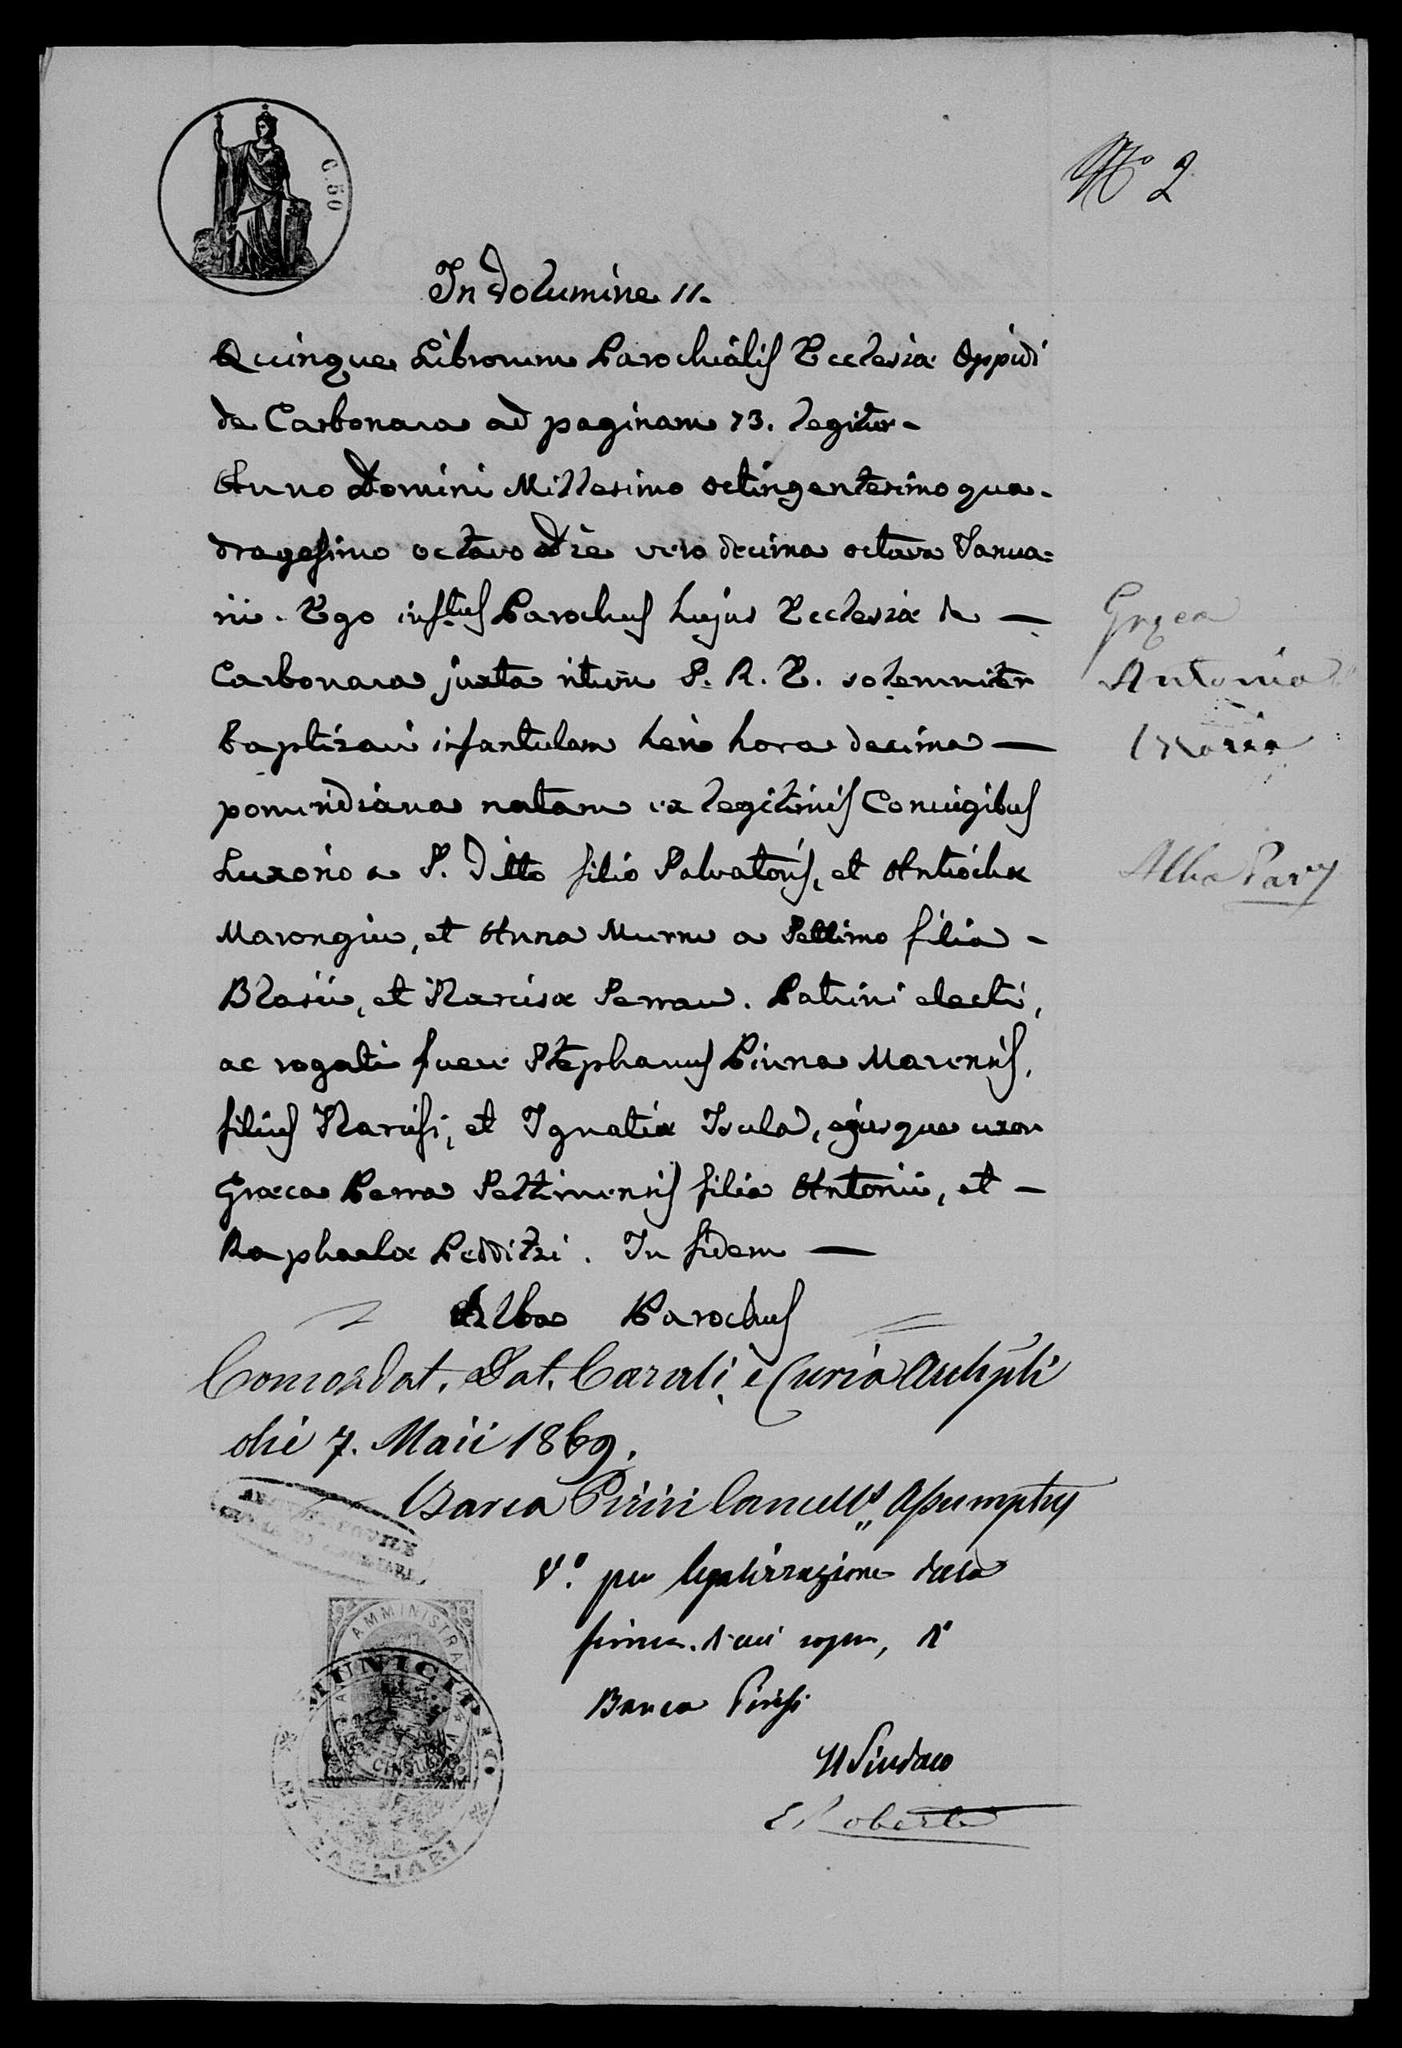 C. 50
N.º 2
In Volumine II.
Quinque Librorum Parochialis Ecclesiæ Oppidi
de Carbonara ad paginam 73. legitur-
Anno Domini Millesimo octingentesimo qua-
dragesimo octavo die vero decima octava Janua=
rii. Ego infrtus Parochus hujus Ecclesiæ de —
Carbonara juxta ritum S. R. E. solemniter
baptizavi infantulam heri hora decima —
pomeridiana natam ex legitimis Conjugibus
Luxorio a S. Vitto filio Salvatoris, et Antiochæ
Marongiu, et Anna Murru a Settimo filia -
Blasii, et Narcisæ Serrau. Patrini electi,
ac rogati fuere Stephanus Pinna Marensis,
filius Narcisi, et Ignatiæ Isula, ejusque uxor
Græca Perra Settimensis filia Antonii, et -
Raphaelæ Pedditzi. In fidem —
Alba Parochus
Græca
Antonia
Maria
Alba Par.s
Concordat. Dat. Carali, e Curia Archipli
die 7. Maii 1869.
Barca Pirisi Cancells Assumptus
V.º per legalizzazione della
firma di cui sopra, di
Barca Pirisi
Il Sindaco
E Roberti
AMMINISTRA
MUNICIPIO
CAGLIARI